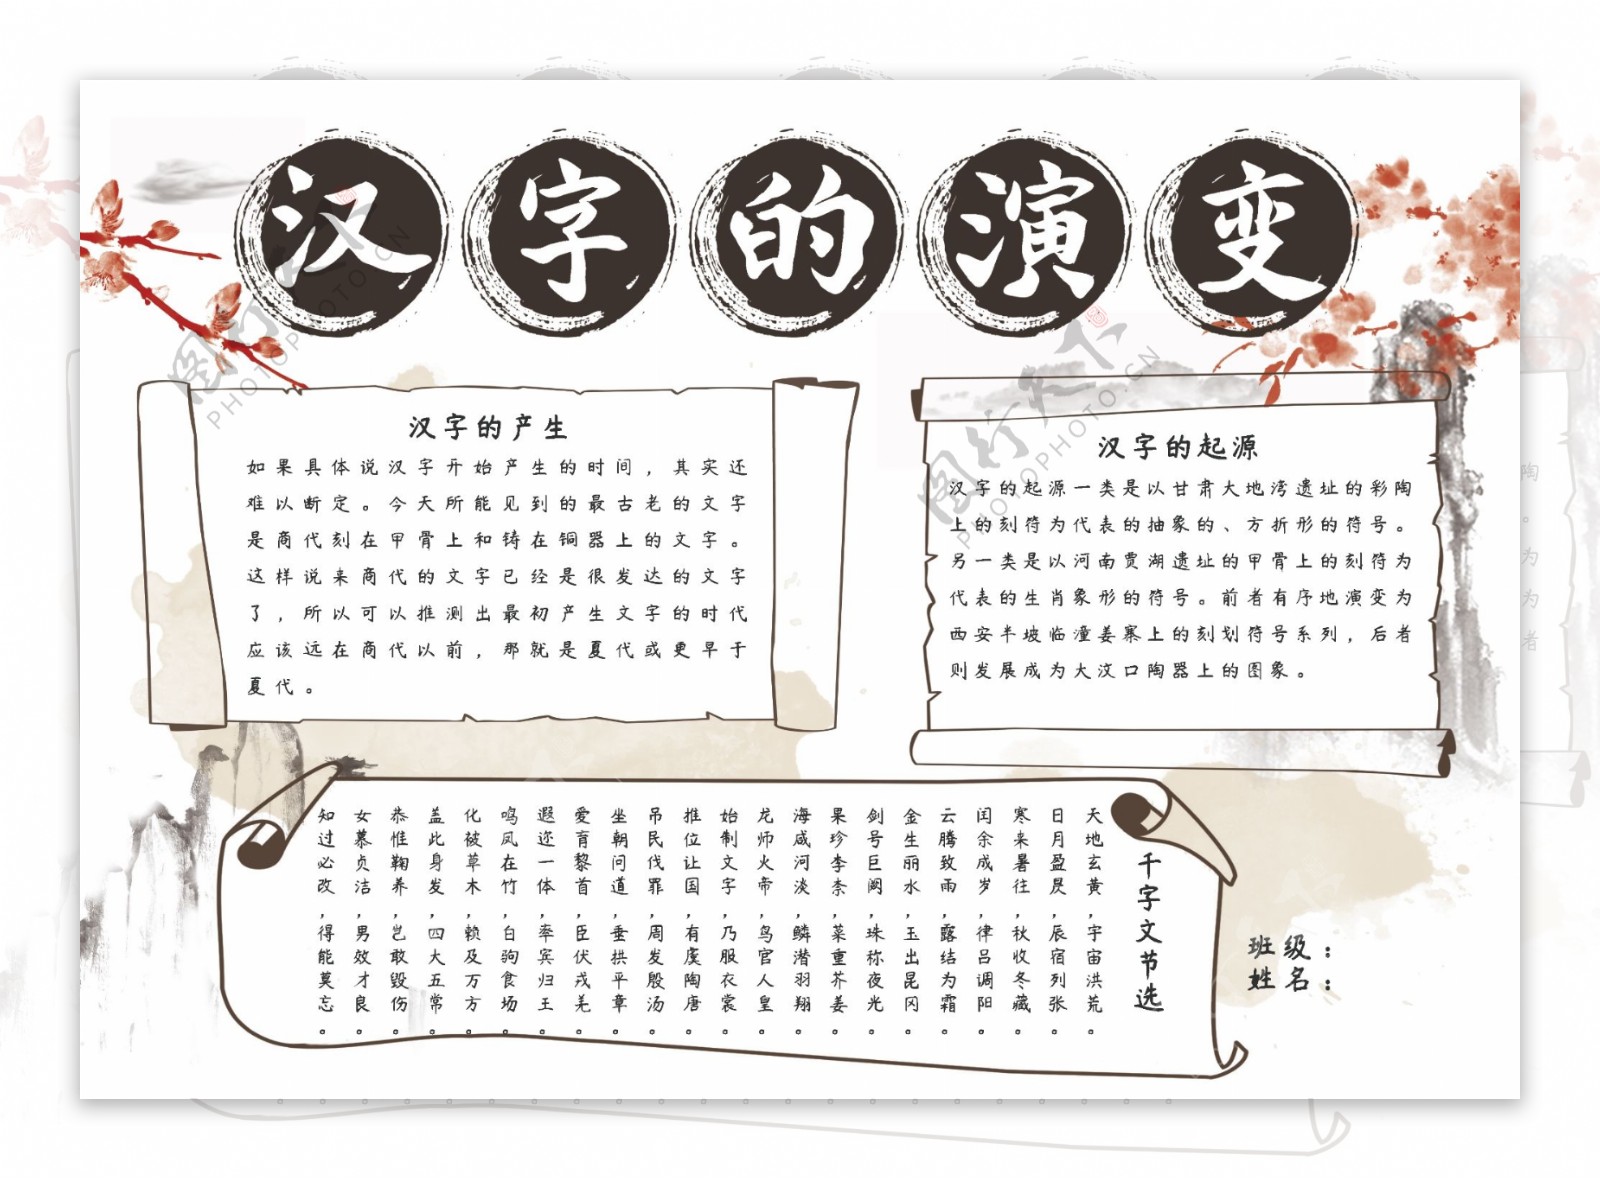 汉字的演变
汉字的产生
如果具体说汉字开始产生的时间，其实还
难以断定。今天所能见到的最古老的文字
是商代刻在甲骨上和铸在铜器上的文字。
这样说来商代的文字已经是很发达的文字
了，所以可以推测出最初产生文字的时代
应该远在商代以前，那就是夏代或更早于
夏代。
汉字的起源
汉字的起源一类是以甘肃大地湾遗址的彩陶
上的刻符为代表的抽象的、方折形的符号。
另一类是以河南贾湖遗址的甲骨上的刻符为
代表的生肖象形的符号。前者有序地演变为
西安半坡临潼姜寨上的刻划符号系列，后者
则发展成为大汶口陶器上的图象。
千字文节选
天地玄黄，宇宙洪荒。
日月盈昃，辰宿列张。
寒来暑往，秋收冬藏。
闰余成岁，律吕调阳。
云腾致雨，露结为霜。
金生丽水，玉出昆冈。
剑号巨阙，珠称夜光。
果珍李柰，菜重芥姜。
海咸河淡，鳞潜羽翔。
龙师火帝，鸟官人皇。
始制文字，乃服衣裳。
推位让国，有虞陶唐。
吊民伐罪，周发殷汤。
坐朝问道，垂拱平章。
爱育黎首，臣伏戎羌。
遐迩一体，率宾归王。
鸣凤在竹，白驹食场。
化被草木，赖及万方。
盖此身发，四大五常。
恭惟鞠养，岂敢毁伤。
女慕贞洁，男效才良。
知过必改，得能莫忘。
班级：
姓名：
图行天下
PHOTOPHOTO.CN
图行天下
PHOTOPHOTO.CN